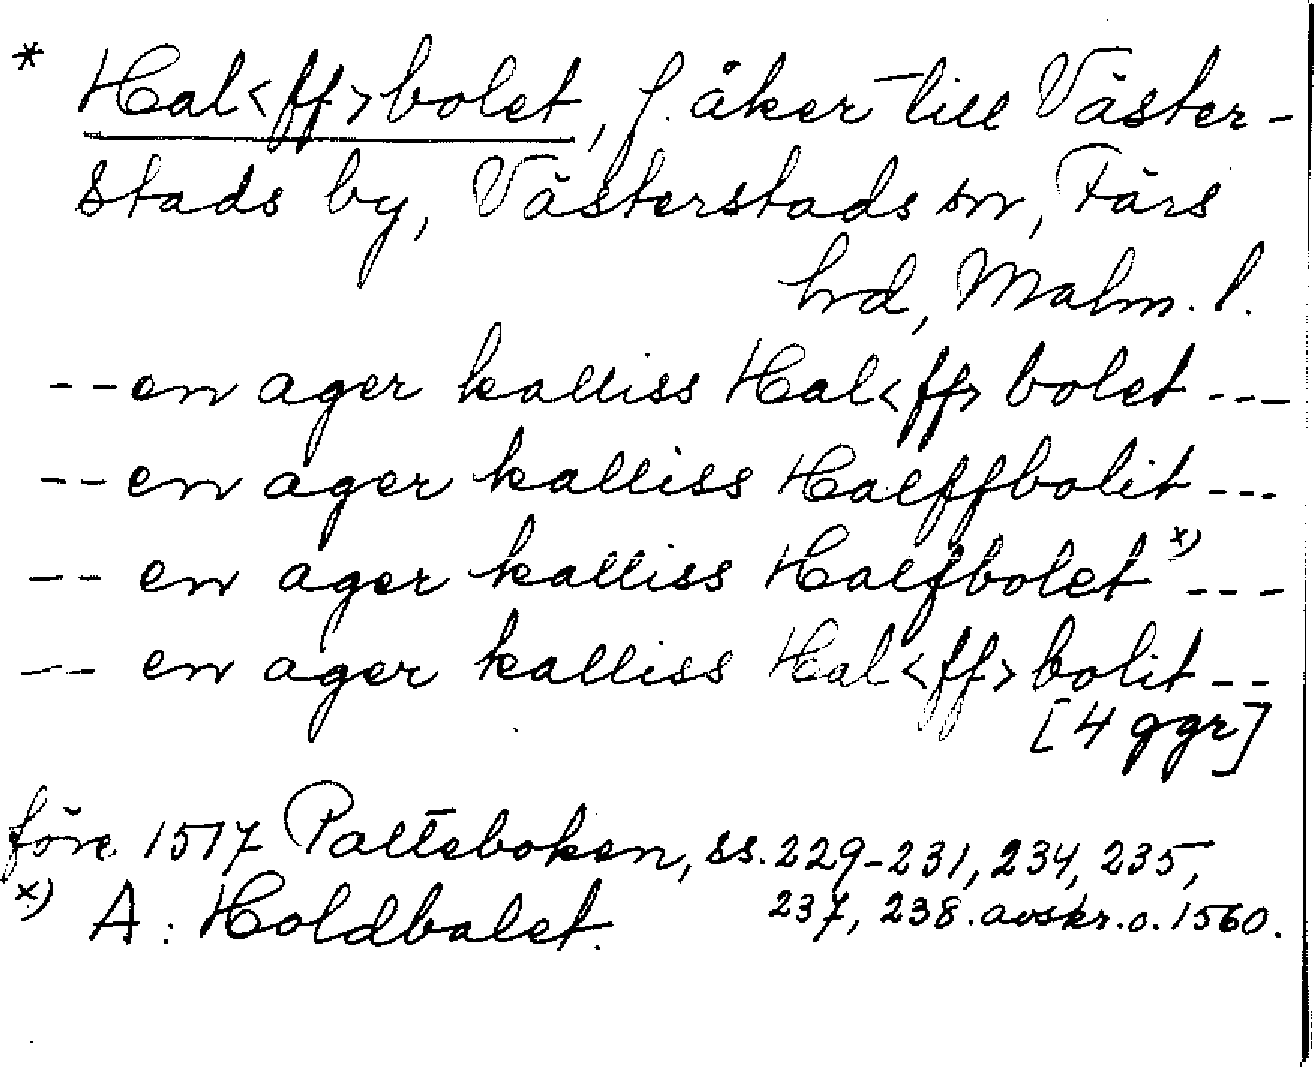 * Hal<ff>bolet, f. åker till Väster-
stads by, Västerstads sn, Färs
hd, Malm. l.
-- en ager kalliss Hal<ff>bolet ---
-- en ager kalliss Halffbolit ---
-- en ager kalliss Halfbolet x) ---
-- en ager kalliss Hal<ff>bolit --
[4 ggr]
före 1517 Palteboken, ss. 229-231, 234, 235,
237, 238. avskr. o. 1560.
x) A: Holdbalet.